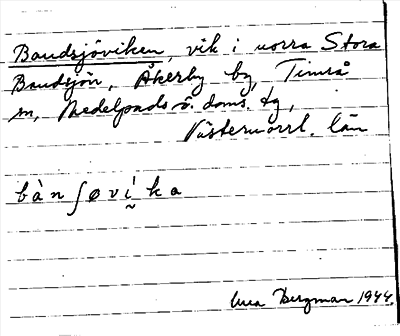 Bandsjöviken, vik i norra Stora
Bandsjön, Åkerby by, Timrå
sn, Medelpads ö. doms. tg,
Västernorrl. län
bànʃøvika
Bergman 1944.